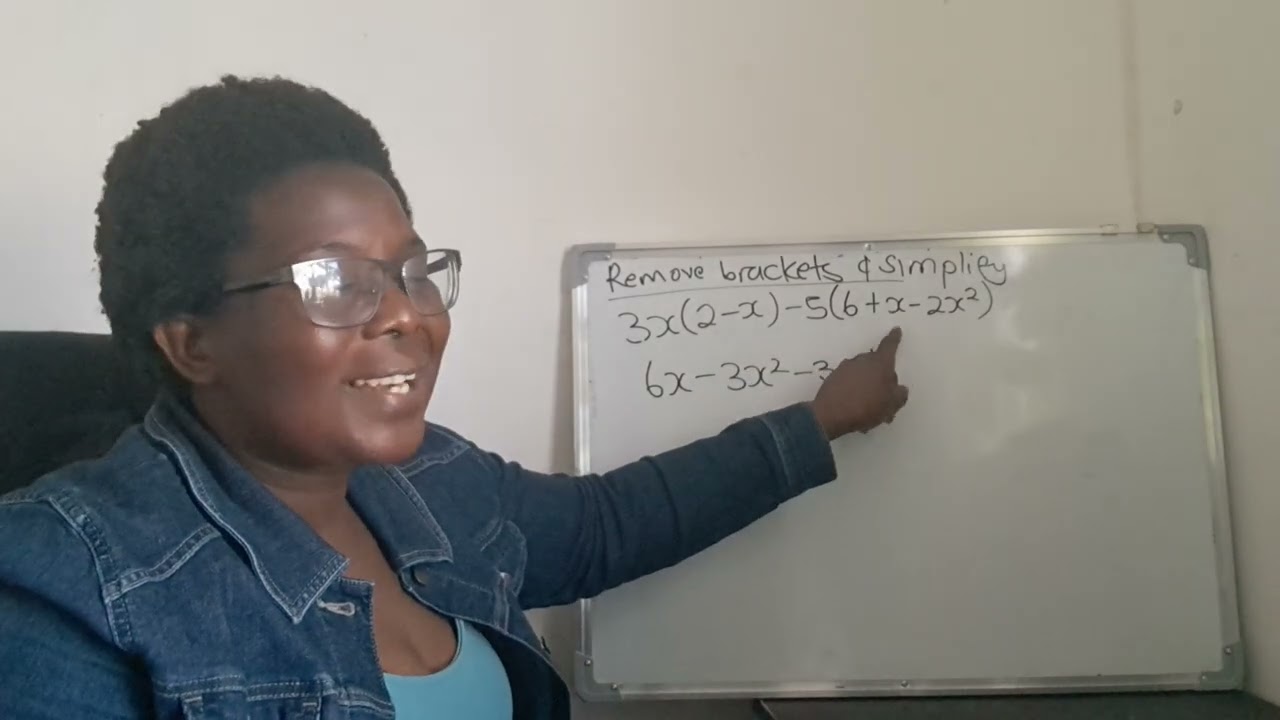 Remove brackets & simplify
3x(2-x)-5(6+x-2x²)
6x-3x²-3